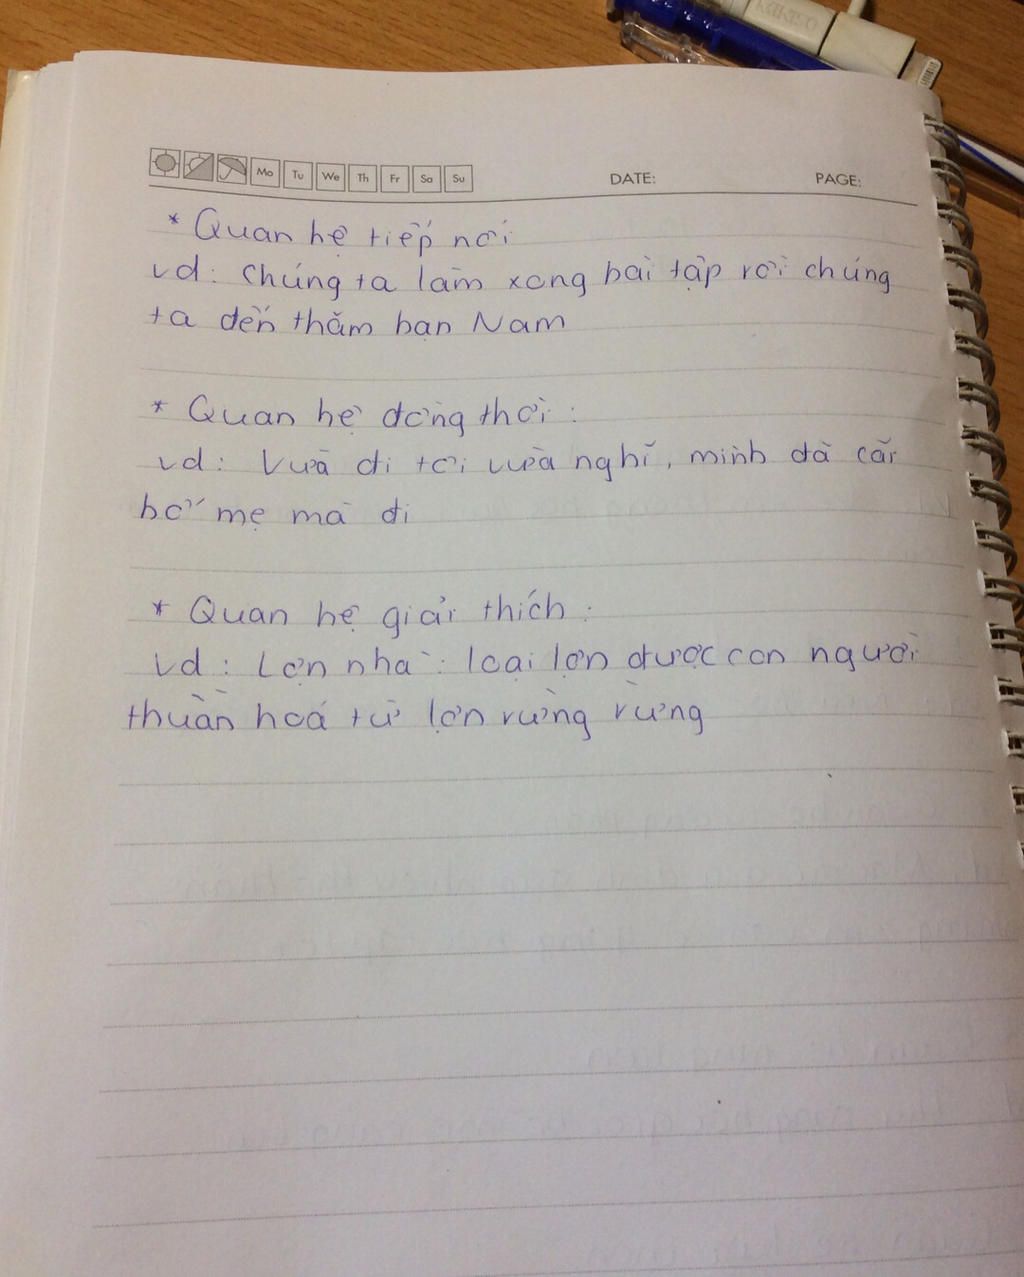 Mo Tu We Th Fr Sa Su DATE: PAGE:
* Quan hệ tiếp nối
vd: Chúng ta làm xong bài tập rồi chúng
ta đến thăm bạn Nam
* Quan hệ đồng thời:
vd: Vừa đi tôi vừa nghĩ, mình đã cãi
bố mẹ mà đi
* Quan hệ giải thích:
vd: Lợn nhà: loại lợn được con người
thuần hoá từ lợn rừng rừng